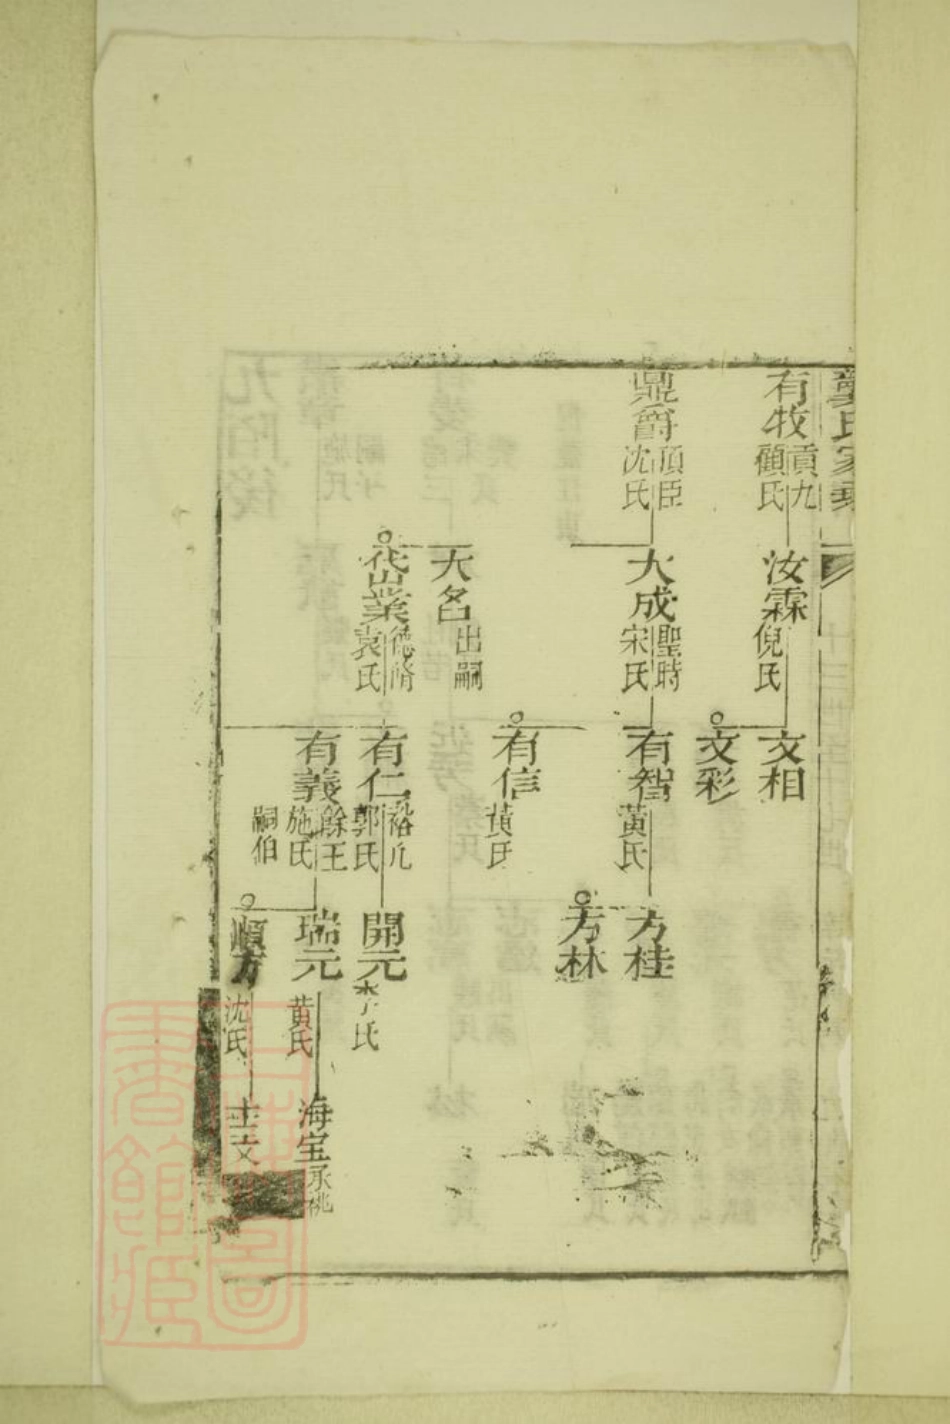 龔氏家乘
有牧 貢九 顧氏
汝霖 倪氏
文相
文彩
鼎爵 頂臣 沈氏
大成 聖時 宋氏
有智 黃氏
方桂
方林
有信 黃氏
大名 出嗣
岱業 德脩 袁氏
有仁 裕凡 郭氏
開元 李氏
有義 餘王 施氏 嗣伯
瑞元 黃氏
海宝 承祧
順方 沈氏
士文
上海圖書館藏